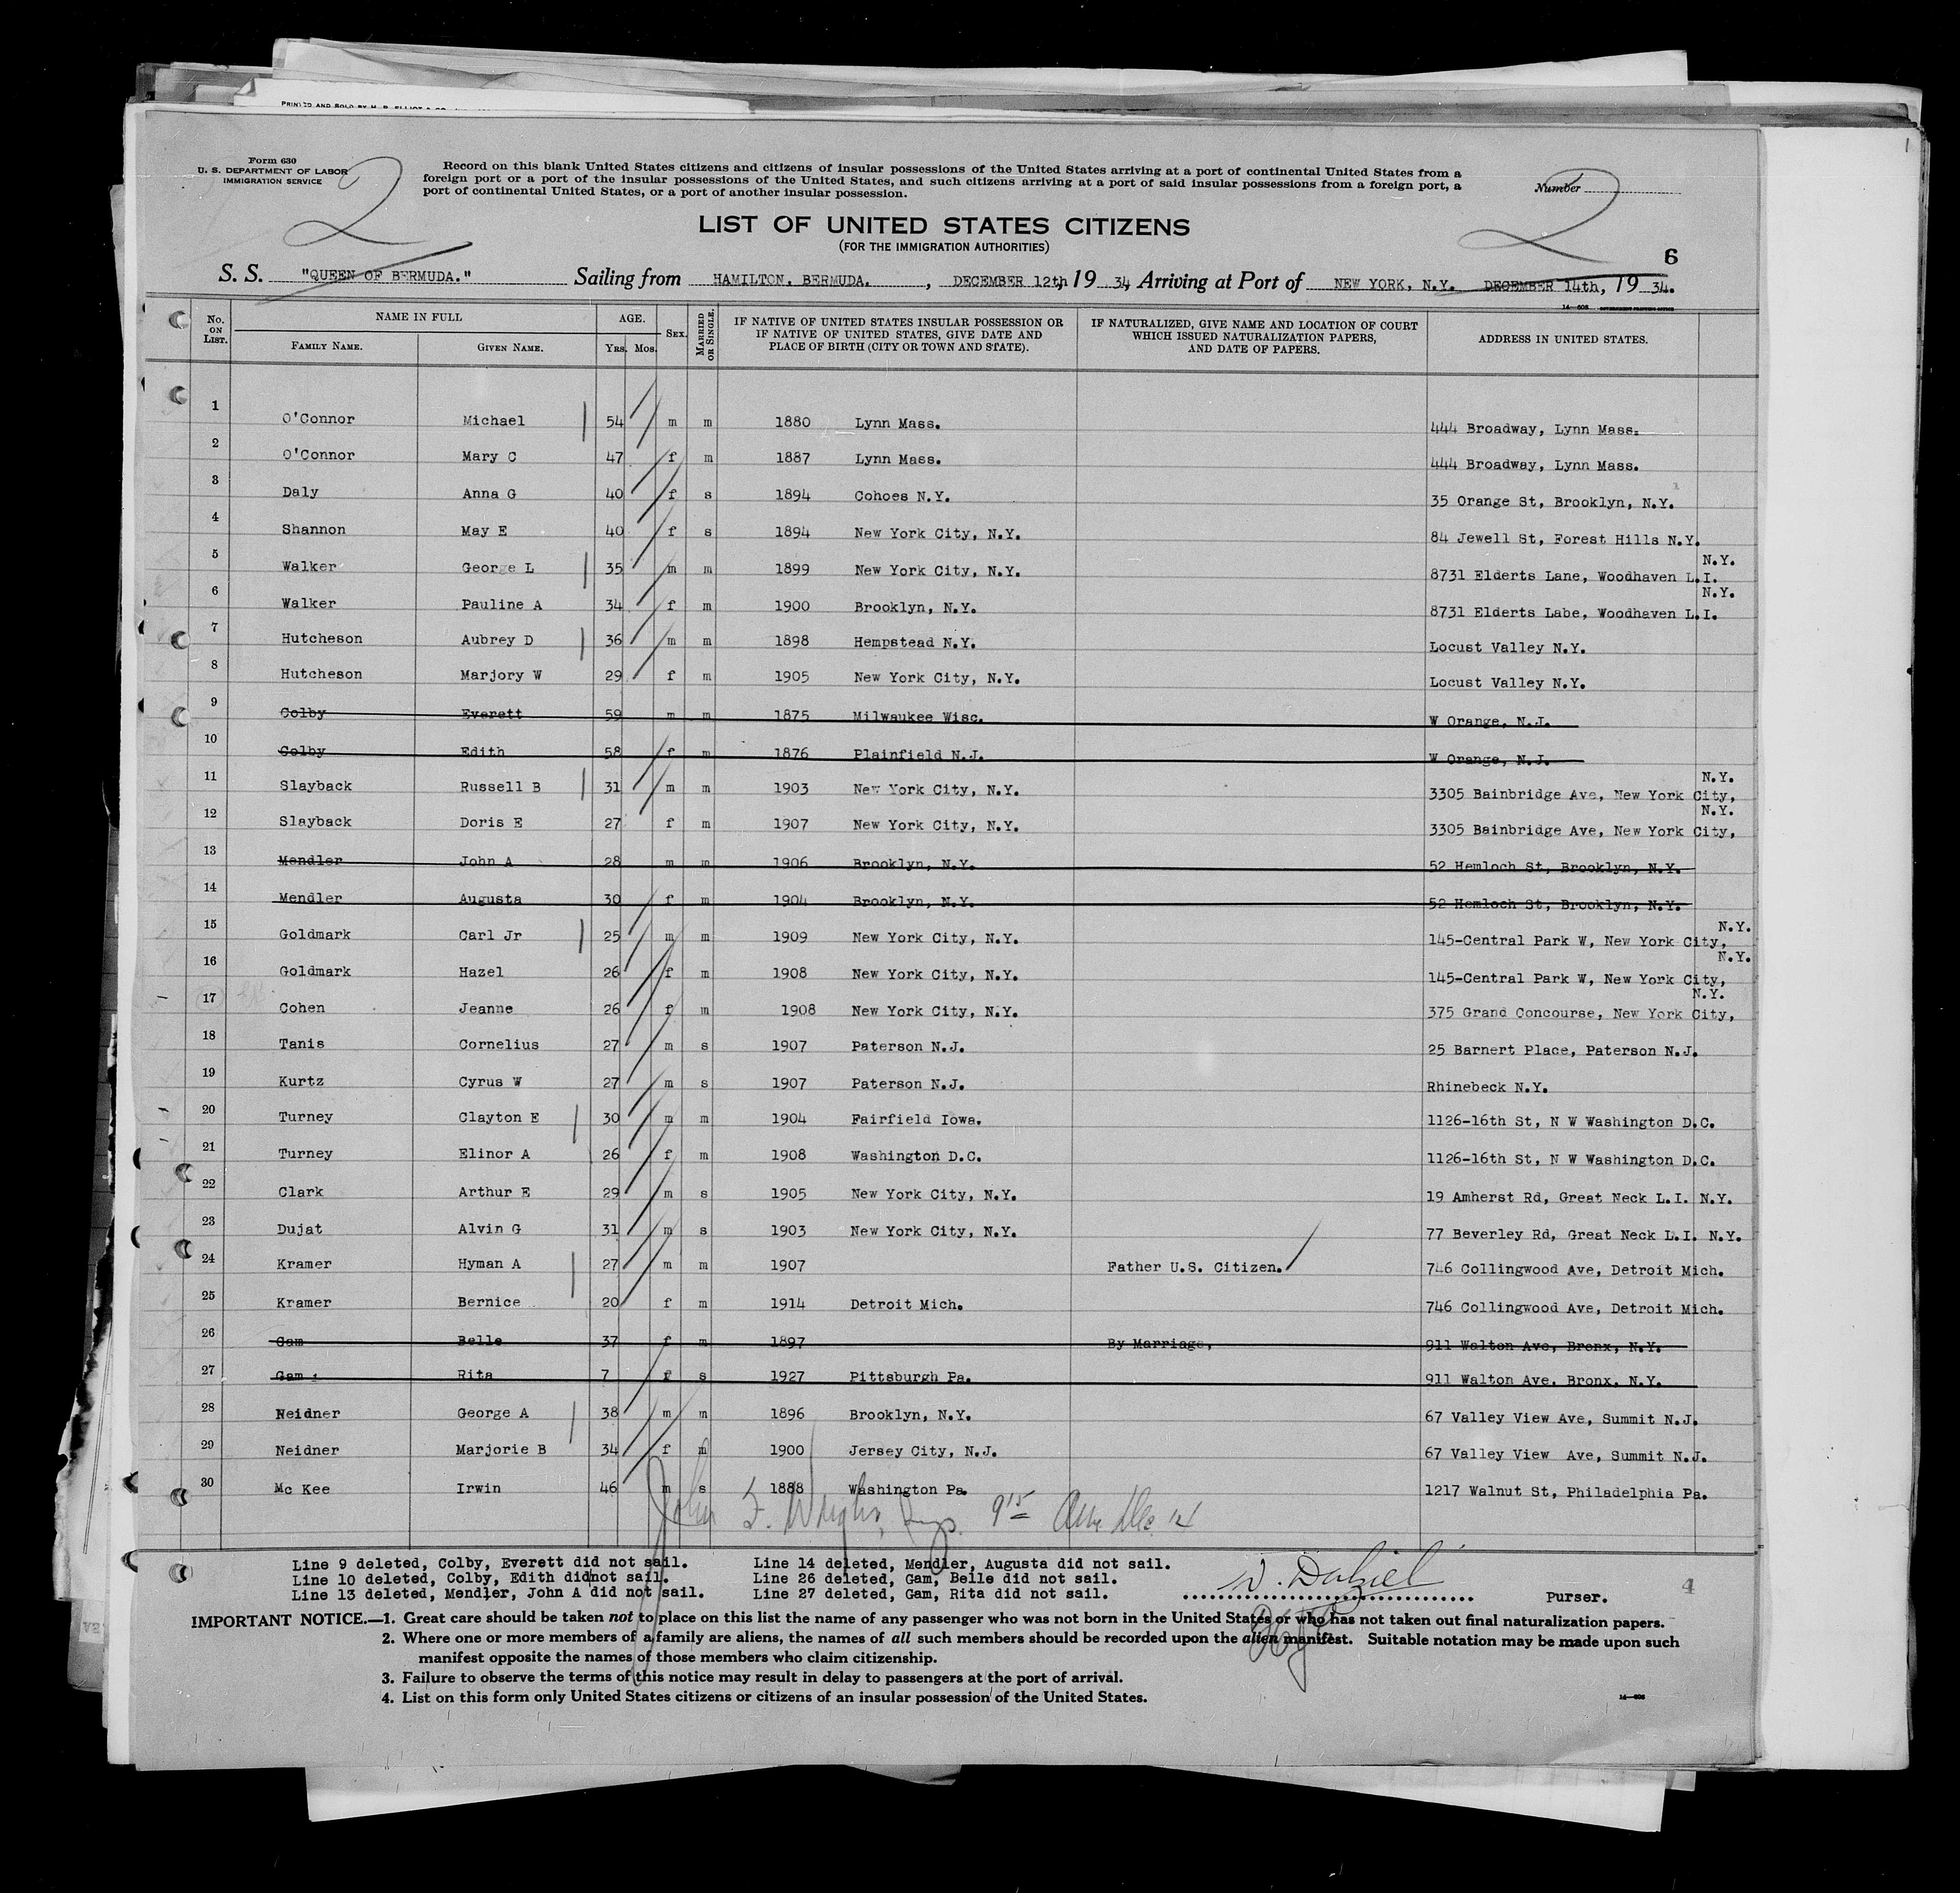 PRINTED AND SOLD BY
Form 630
U. S. DEPARTMENT OF LABOR
IMMIGRATION SERVICE
2
Record on this blank United States citizens and citizens of insular possessions of the United States arriving at a port of continental United States from a
foreign port or a port of the insular possessions of the United States, and such citizens arriving at a port of said insular possessions from a foreign port, a
port of continental United States, or a port of another insular possession.
Number
2
LIST OF UNITED STATES CITIZENS
(FOR THE IMMIGRATION AUTHORITIES)
6
S. S. "QUEEN OF BERMUDA." Sailing from HAMILTON. BERMUDA. , DECEMBER 12th, 19 34, Arriving at Port of NEW YORK, N.Y. DECEMBER 14th, 19 34.
No. ON LIST. NAME IN FULL FAMILY NAME. GIVEN NAME. AGE. Yrs. Mos. SEX. MARRIED OR SINGLE. IF NATIVE OF UNITED STATES INSULAR POSSESSION OR IF NATIVE OF UNITED STATES, GIVE DATE AND PLACE OF BIRTH (CITY OR TOWN AND STATE). IF NATURALIZED, GIVE NAME AND LOCATION OF COURT WHICH ISSUED NATURALIZATION PAPERS, AND DATE OF PAPERS. ADDRESS IN UNITED STATES.
1 O'Connor Michael 54 m m 1880 Lynn Mass. 444 Broadway, Lynn Mass.
2 O'Connor Mary C 47 f m 1887 Lynn Mass. 444 Broadway, Lynn Mass.
3 Daly Anna G 40 f s 1894 Cohoes N.Y. 35 Orange St, Brooklyn, N.Y.
4 Shannon May E 40 f s 1894 New York City, N.Y. 84 Jewell St, Forest Hills N.Y.
5 Walker George L 35 m m 1899 New York City, N.Y. 8731 Elderts Lane, Woodhaven L.I. N.Y.
6 Walker Pauline A 34 f m 1900 Brooklyn, N.Y. 8731 Elderts Labe, Woodhaven L.I. N.Y.
7 Hutcheson Aubrey D 36 m m 1898 Hempstead N.Y. Locust Valley N.Y.
8 Hutcheson Marjory W 29 f m 1905 New York City, N.Y. Locust Valley N.Y.
9 Colby Everett 59 m m 1875 Milwaukee Wisc. W Orange, N.J.
10 Colby Edith 58 f m 1876 Plainfield N.J. W Orange, N.J.
11 Slayback Russell B 31 m m 1903 New York City, N.Y. 3305 Bainbridge Ave, New York City, N.Y.
12 Slayback Doris E 27 f m 1907 New York City, N.Y. 3305 Bainbridge Ave, New York City, N.Y.
13 Mendler John A 28 m m 1906 Brooklyn, N.Y. 52 Hemloch St, Brooklyn, N.Y.
14 Mendler Augusta 30 f m 1904 Brooklyn, N.Y. 52 Hemloch St, Brooklyn, N.Y.
15 Goldmark Carl Jr 25 m m 1909 New York City, N.Y. 145-Central Park W, New York City, N.Y.
16 Goldmark Hazel 26 f m 1908 New York City, N.Y. 145-Central Park W, New York City, N.Y.
17 Cohen Jeanne 26 f m 1908 New York City, N.Y. 375 Grand Concourse, New York City, N.Y.
18 Tanis Cornelius 27 m s 1907 Paterson N.J. 25 Barnert Place, Paterson N.J.
19 Kurtz Cyrus W 27 m s 1907 Paterson N.J. Rhinebeck N.Y.
20 Turney Clayton E 30 m m 1904 Fairfield Iowa. 1126-16th St, N W Washington D.C.
21 Turney Elinor A 26 f m 1908 Washington D.C. 1126-16th St, N W Washington D.C.
22 Clark Arthur E 29 m s 1905 New York City, N.Y. 19 Amherst Rd, Great Neck L.I. N.Y.
23 Dujat Alvin G 31 m s 1903 New York City, N.Y. 77 Beverley Rd, Great Neck L.I. N.Y.
24 Kramer Hyman A 27 m m 1907 Father U.S. Citizen. 746 Collingwood Ave, Detroit Mich.
25 Kramer Bernice 20 f m 1914 Detroit Mich. 746 Collingwood Ave, Detroit Mich.
26 Gam Belle 37 f m 1897 By Marriage, 911 Walton Ave, Bronx, N.Y.
27 Gam Rita 7 f s 1927 Pittsburgh Pa. 911 Walton Ave. Bronx. N.Y.
28 Neidner George A 38 m m 1896 Brooklyn, N.Y. 67 Valley View Ave, Summit N.J.
29 Neidner Marjorie B 34 f m 1900 Jersey City, N.J. 67 Valley View Ave, Summit N.J.
30 Mc Kee Irwin 46 m s 1888 Washington Pa. 1217 Walnut St, Philadelphia Pa.
John F. 9 15 Dec 14
Line 9 deleted, Colby, Everett did not sail. Line 14 deleted, Mendler, Augusta did not sail.
Line 10 deleted, Colby, Edith didnot sail. Line 26 deleted, Gam, Belle did not sail.
Line 13 deleted, Mendler, John A did not sail. Line 27 deleted, Gam, Rita did not sail.
Purser.
4
IMPORTANT NOTICE.—1. Great care should be taken not to place on this list the name of any passenger who was not born in the United States or who has not taken out final naturalization papers.
2. Where one or more members of a family are aliens, the names of all such members should be recorded upon the alien manifest. Suitable notation may be made upon such
manifest opposite the names of those members who claim citizenship.
3. Failure to observe the terms of this notice may result in delay to passengers at the port of arrival.
4. List on this form only United States citizens or citizens of an insular possession of the United States.